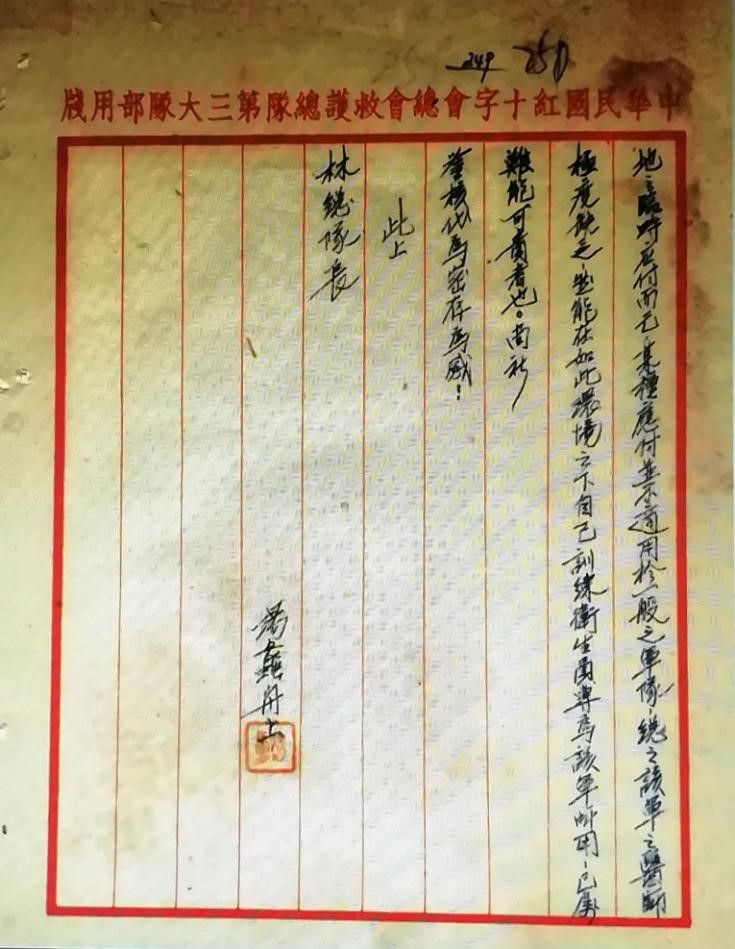 249 250
中華民國紅十字會總會救護總隊第三大隊部用牋
地之臨時应付而已，某種應付並不適用於一般之軍隊，總之該軍之醫師
極度缺乏，並能在如此環境之下自己訓練衛生員專為該軍所用，已屬
難能可貴者也。尚祈
詧核代為密存為感！
此上
林總隊長
馮 舟上